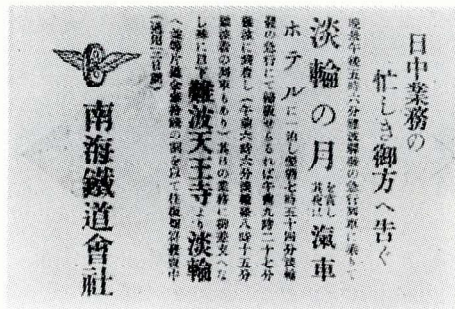 日中業務の
忙しき御方へ告ぐ
晩景午後五時六分難波驛發の急行列車に乘りて
淡輪の月を賞し其夜は滊車
ホテルに一泊し翌朝七時五十四分淡輪
發の急行にて歸阪せらるれば午前九時二十七分
難波に到着し(午前六時六分淡輪發八時十五分
難波着の列車もあり)其日の業務に御差支へな
し殊に目下難波天王寺より淡輪
へ並等片道金 錢の割を以て往復割引發賣中
(通用二日間)
南海鐵道會社